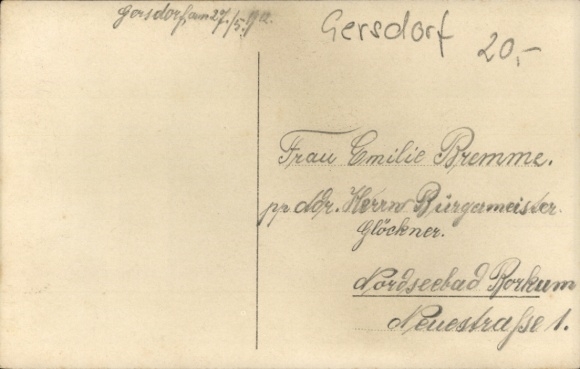 Gersdorf, am 27./5. 12.
Gersdorf
20,-
Frau Emilie Bremme.
pp. Adr. Herrn Bürgermeister
Glöckner.
Nordseebad Borkum
Neuestraße 1.